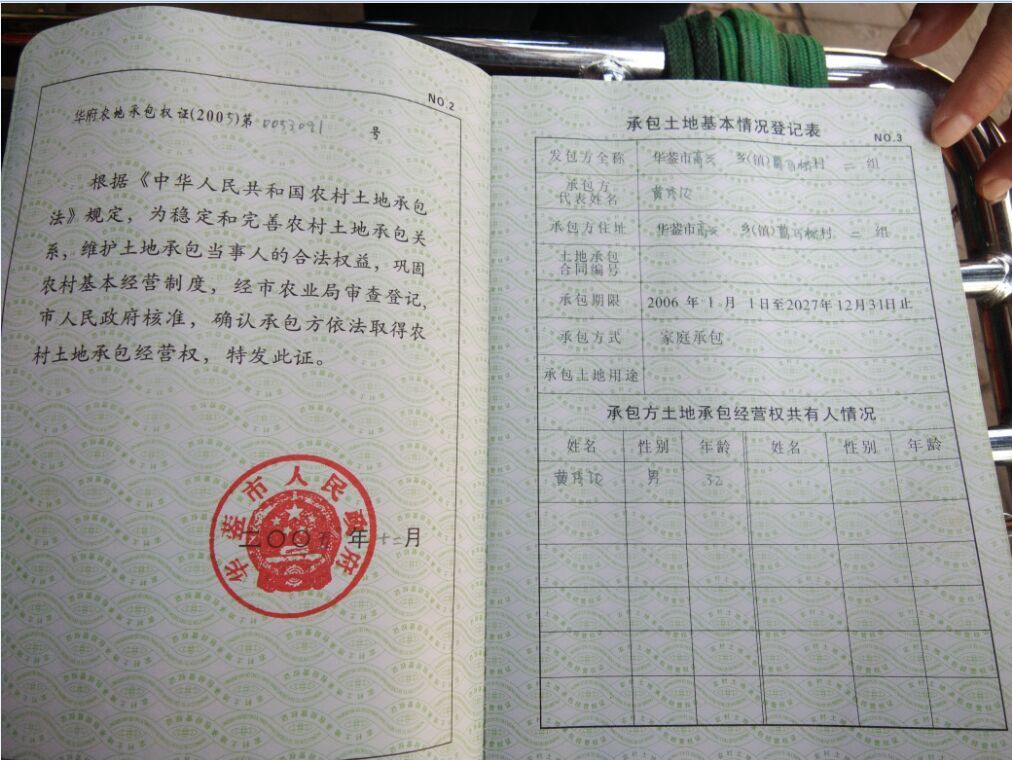 NO.2
华府农地承包权证(2005)第0053091号
根据《中华人民共和国农村土地承包
法》规定，为稳定和完善农村土地承包关
系，维护土地承包当事人的合法权益，巩固
农村基本经营制度，经市农业局审查登记，
市人民政府核准，确认承包方依法取得农
村土地承包经营权，特发此证。
华蓥市人民政府
二〇〇五年十二月
承包土地基本情况登记表
NO.3
发包方全称 华蓥市高兴乡(镇)村二组
承包方
代表姓名 黄
承包方住址 华蓥市高兴乡(镇)村二组
土地承包
合同编号
承包期限 2006年1月1日至2027年12月31日止
承包方式 家庭承包
承包土地用途
承包方土地承包经营权共有人情况
姓名 性别 年龄 姓名 性别 年龄
黄 男 32